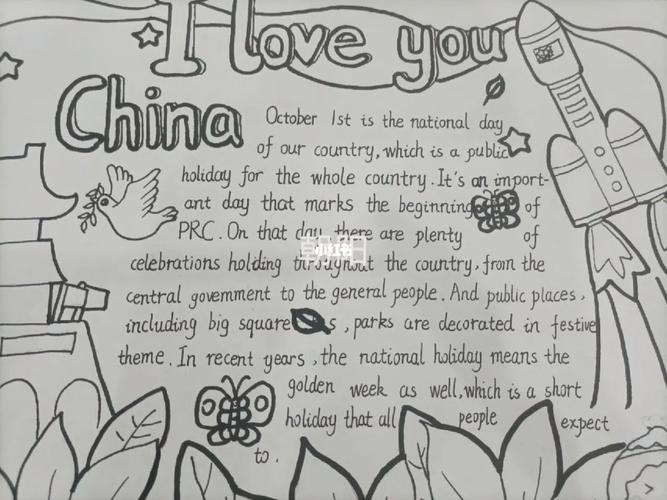 I love you
China
October 1st is the national day
of our country, which is a public
holiday for the whole country. It's an import-
ant day that marks the beginning of
PRC. On that day, there are plenty of
celebrations holding throughout the country, from the
central government to the general people. And public places,
including big squares, parks are decorated in festive
theme. In recent years, the national holiday means the
golden week as well, which is a short
holiday that all people expect
to.
小红书